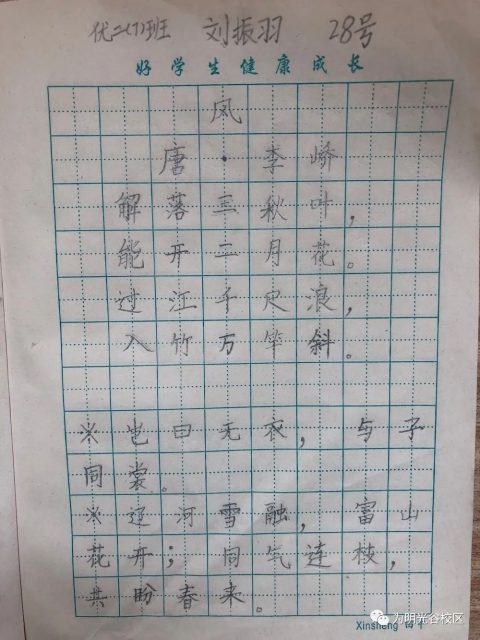 优二(7)班 刘振羽 28号
好学生健康成长
风
唐·李峤
解落三秋叶，
能开二月花。
过江千尺浪，
入竹万竿斜。
※岂曰无衣，与子
同裳。
※辽河雪融，富山
花开；同气连枝，
共盼春来。
Xinsheng
为明光谷校区